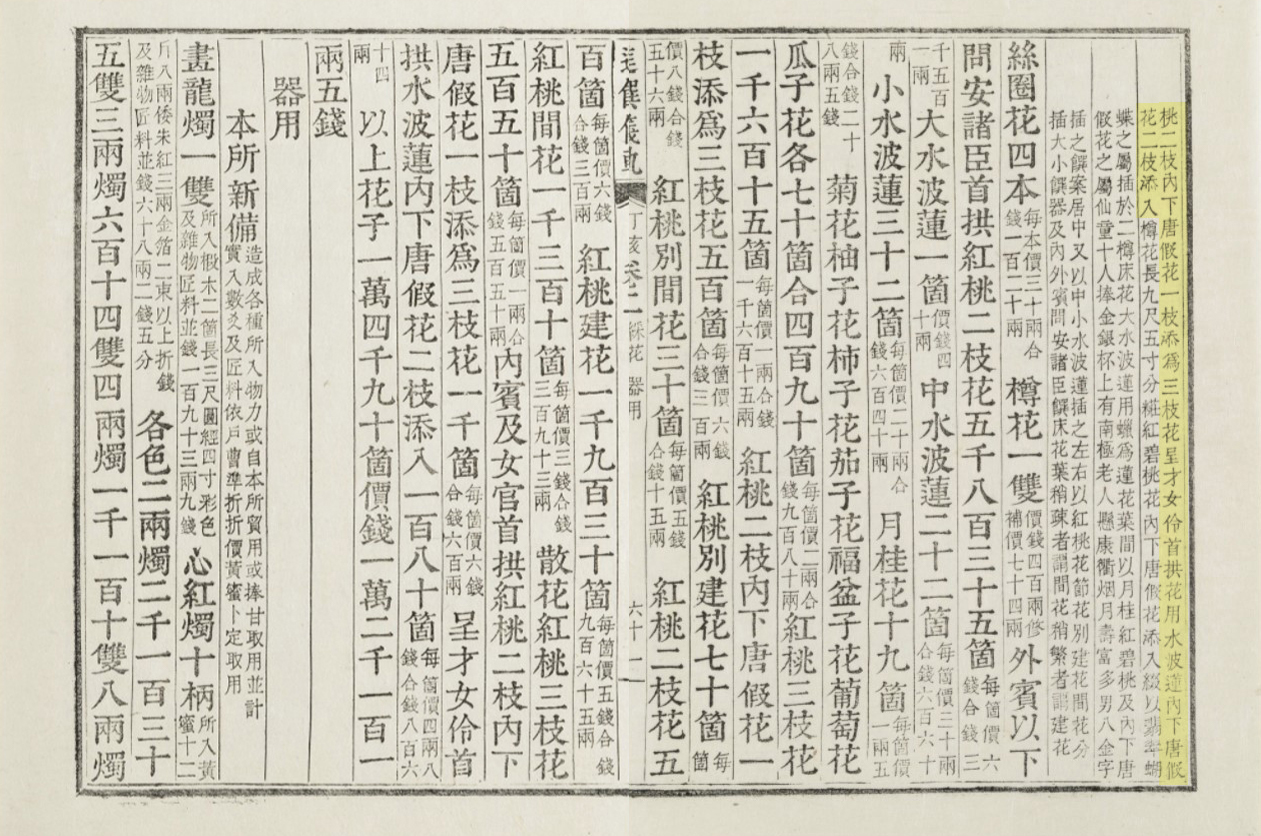 桃二枝內下唐假花一枝添爲三枝花呈才女伶首拱花用水波蓮內下唐假
花二枝添入樽花長九尺五寸分糚紅碧桃花內下唐假花添入綴以翡翠蝴
蝶之屬插於二樽床花大水波蓮用蠟爲蓮花葉間以月桂紅碧桃及內下唐
假花之屬仙童十人捧金銀杯上有南極老人懸康衢烟月壽富多男八金字
插之饌案居中又以中小水波蓮插之左右以紅桃花節花別建花間花分
插大小饌器及內外賓問安諸臣饌床花葉稍疎者謂間花稍繁者謂建花
絲圈花四本每本價三十兩合錢一百二十兩 樽花一雙價錢四百兩修補價七十四兩 外賓以下
問安諸臣首拱紅桃二枝花五千八百三十五箇每箇價六錢合錢三
千五百一兩 大水波蓮一箇價錢四十兩 中水波蓮二十二箇每箇價三十兩合錢六百六十
兩 小水波蓮三十二箇每箇價二十兩合錢六百四十兩 月桂花十九箇每箇價一兩五
錢合錢二十八兩五錢 菊花柚子花柿子花茄子花福盆子花葡萄花
瓜子花各七十箇合四百九十箇每箇價二兩合錢九百八十兩 紅桃三枝花
一千六百十五箇每箇價一兩合錢一千六百十五兩 紅桃二枝內下唐假花一
枝添爲三枝花五百箇每箇價六錢合錢三百兩 紅桃別建花七十箇每箇
價八錢合錢五十六兩 紅桃別間花三十箇每箇價五錢合錢十五兩 紅桃二枝花五
進饌儀軌 丁亥 卷二 綵花 器用 六十二
百箇每箇價六錢合錢三百兩 紅桃建花一千九百三十箇每箇價五錢合錢九百六十五兩
紅桃間花一千三百十箇每箇價三錢合錢三百九十三兩 散花紅桃三枝花
五百五十箇每箇價一兩合錢五百五十兩 內賓及女官首拱紅桃二枝內下
唐假花一枝添爲三枝花一千箇每箇價六錢合錢六百兩 呈才女伶首
拱水波蓮內下唐假花二枝添入一百八十箇每箇價四兩八錢合錢八百六
十四兩 以上花子一萬四千九十箇價錢一萬二千一百一
兩五錢
器用
本所新備造成各種所入物力或自本所貿用或捧甘取用並計實入數爻及匠料依戶曹準折折價黃蜜卜定取用
畫龍燭一雙所入椴木二箇長三尺圓經四寸彩色及雜物匠料並錢一百九十三兩九錢 心紅燭十柄所入黃蜜十二
斤八兩倭朱紅三兩金箔二束以上折錢及雜物匠料並錢六十八兩二錢五分 各色二兩燭二千一百三十
五雙三兩燭六百十四雙四兩燭一千一百十雙八兩燭